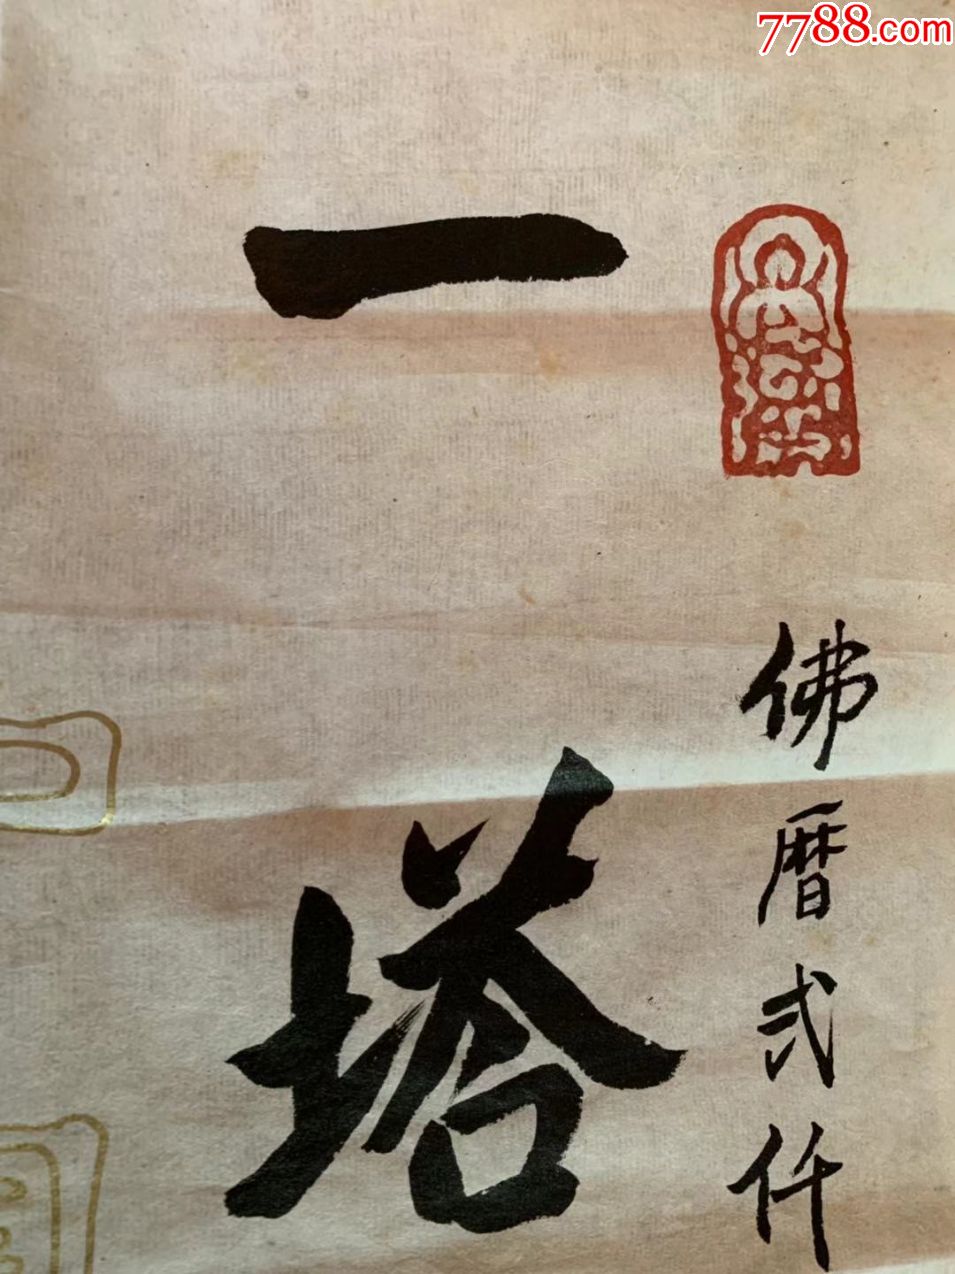 7788.com
佛曆弍仟
一塔